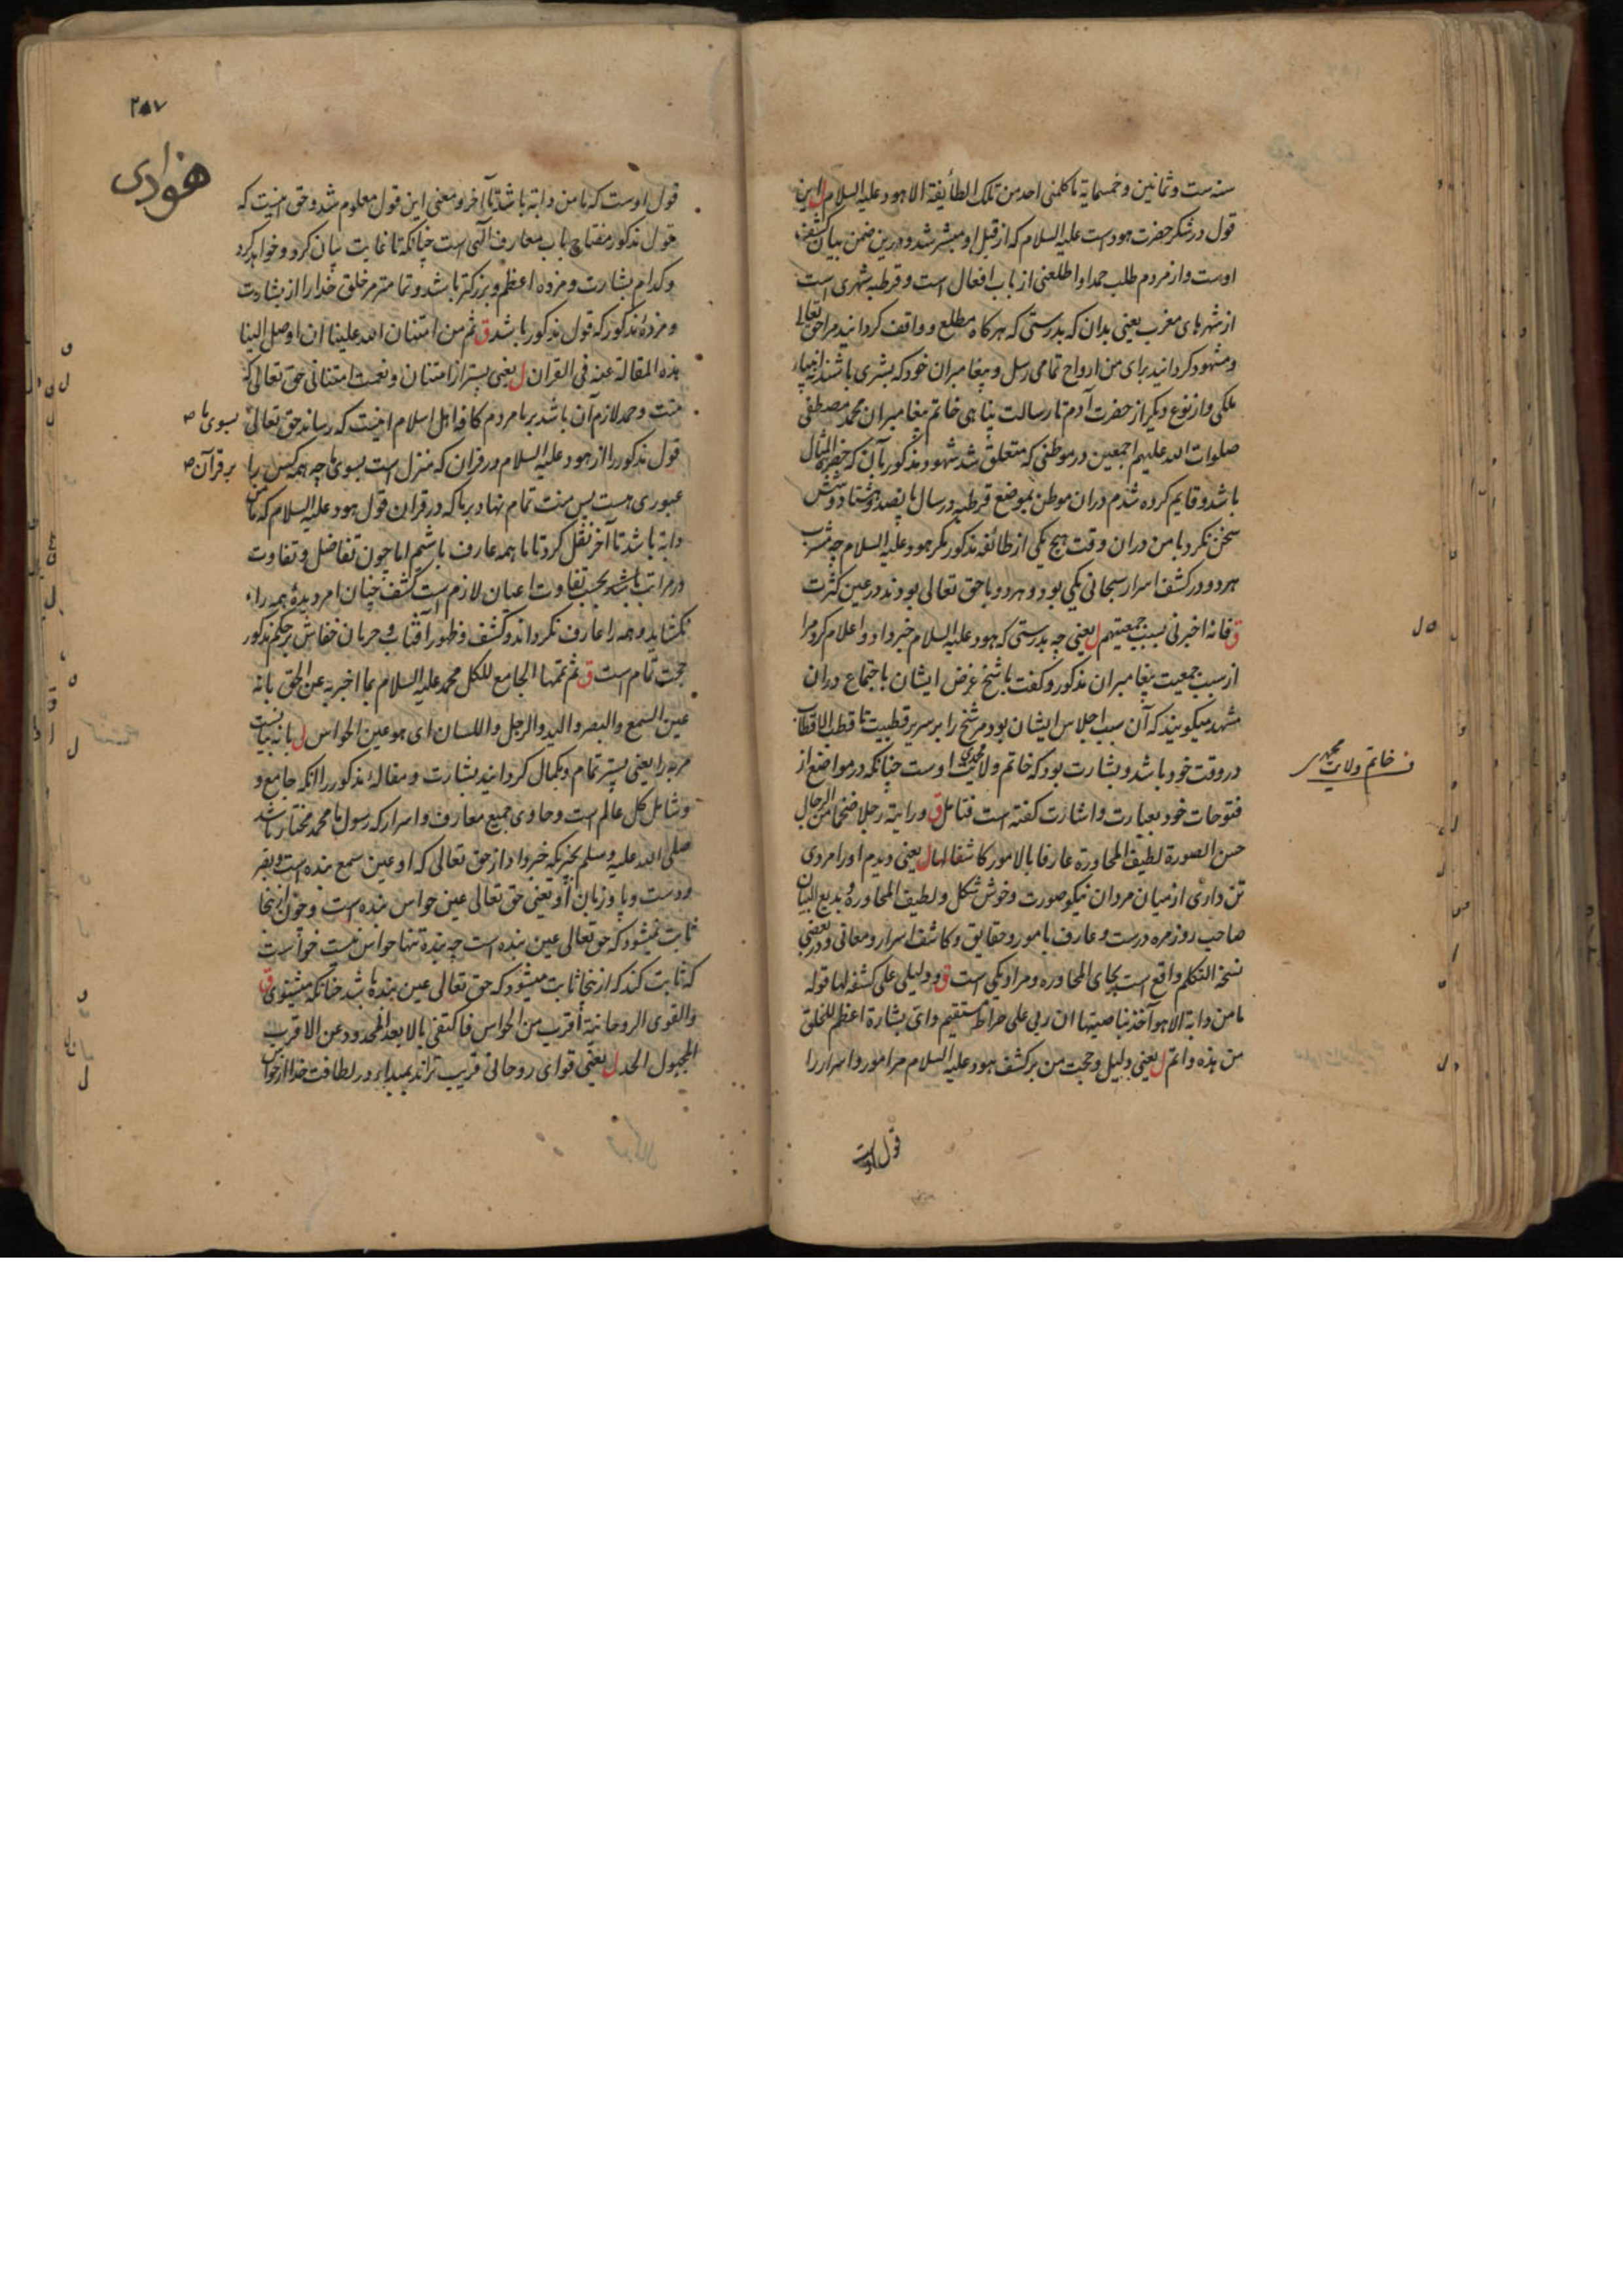 سنه ست وثمانین وخمسمایة ما کلمنی احد من تلک الطائیفة الا هود علیه السلام ل این
قول در شکر حضرت هودست علیه السلام که از قبل او مبشر شد و درین ضمن بیان کشف
اوست واز مردم طلب حمد او اطلعنی از باب افعال است وقرطبه شهری است
از شهرهای مغرب یعنی بدان که بدرستی که هرکاه مطلع و واقف کردانید مرا حق تعالی
ومشهود کردانید برای من ارواح تمامی رسل و پیغامبران خود که بشری باشند نه انبیاء
ملکی واز نوع دیکر از حضرت آدم تا رسالت پناهی خاتم پیغامبران محمد مصطفی
صلوات الله علیهم اجمعین در موطنی که متعلق شد شهود مذکور بآن که حضرة المثال
باشد و قایم کرده شدم دران موطن بموضع قرطبه در سال پانصد و هشتاد و شش
سخن نکرد با من دران وقت هیچ یکی از طائفه مذکور مکر هود علیه السلام چه مشرب
هر دو در کشف اسرار سبحانی یکی بود و هر دو با حق تعالی بودند در عین کثرت
ق فانه اخبرنی بسبب جمعیتهم ل یعنی چه بدرستی که هود علیه السلام خبر داد و اعلام کرد مرا
از سبب جمعیت پیغامبران مذکور و کفت با شیخ غرض ایشان باجتماع دران
مشهد میکویند که آن سبب اجلاس ایشان بود مر شیخ را بر سریر قطبیت تا قطب الاقطاب
در وقت خود باشد و بشارت بود که خاتم ولایت محمدی اوست چنانکه در مواضع از
نـ خاتم ولایت محمدی
فتوحات خود بعبارت و اشارت کفته است فتامل ق ورایته رجلا ضخما من الرجال
حسن الصورة لطیف المحاورة عارفا بالامور کاشفا لها ل یعنی دیدم او را مردی
تن داری از میان مردان نیکو صورت و خوش شکل و لطیف المحاوره و بدیع البیان
صاحب روزمره درست و عارف بامور و حقایق و کاشف اسرار و معانی و در بعضی
نسخ التکلم واقع است بجای المحاوره و مراد یکی است ق ودلیلی علی کشفه لها قوله
ما من دابة الا هو آخذ بناصیتها ان ربی علی صراط مستقیم وای بشارة اعظم للخلق
من هذه واتم ل یعنی دلیل و حجت من بر کشف هود علیه السلام مر امور و اسرار را
قول اوست
۲۸۷
هوادی
قول اوست که ما من دابة باشد تا آخر و معنی این قول معلوم شد و حق اینست که
قول مذکور مفتاح باب معارف آلهی است چنانکه تا غایت بیان کرد و خواهد کرد
و کدام بشارت و مژده اعظم و بزرکتر باشد و تمامتر مر خلق خدا را از بشارت
و مژدهٔ مذکور که قول مذکور باشد ق ثم من امتنان الله علینا ان اوصل الینا
هذه المقالة عنه فی القران ل یعنی پستر از امتنان و نعمت امتنانی حق تعالی که
منت و حمد لازم آن باشد بر ما مردم کافه اهل اسلام اینست که رساند حق تعالی
بسوی ما صح
قول مذکور را از هود علیه السلام در قران که منزل است بسوی ما چه همه کس را
بر قرآن صح
عبوری هست پس منت تمام نهاد بر ما که در قران قول هود علیه السلام که ما من
دابة باشد تا آخر نقل کرد تا ما همه عارف باشیم اما چون تفاضل و تفاوت
در مراتب باشد بحسب تفاوت اعیان لازم است کشف چنان امر دیدهٔ همه را
نکشاید و همه را عارف نکرداند و کشف و ظهور آفتاب و حرمان خفاش بر حکم مذکور
حجت تمام است ق ثم تممها الجامع للکل محمد علیه السلام بما اخبر به عن الحق بانه
عین السمع والبصر والید والرجل واللسان ای هو عین الحواس ل
را یعنی پستر تمام و بکمال کردانید بشارت و مقالهٔ مذکور را آنکه جامع و
وشامل کل عالم است و حاوی جمیع معارف و اسرار که رسول ما محمد مختار باشد
صلی الله علیه وسلم بچیزیکه خبر داد از حق تعالی که او عین سمع بنده است و بصر
و دست و پا و زبان او یعنی حق تعالی عین حواس بنده است و چون ازینجا
ثابت نمیشود که حق تعالی عین بنده است چه بنده تنها حواس نیست خواست
که ثابت کند که ازینجا ثابت میشود که حق تعالی عین بنده باشد چنانکه میشنوی ق
والقوی الروحانیة أقرب من الحواس فاکتفی بالابعد المحدود عن الاقرب
المجهول الحد ل یعنی قوای روحانی قریب تراند بمبدا بر در لطافت خدا از حواس